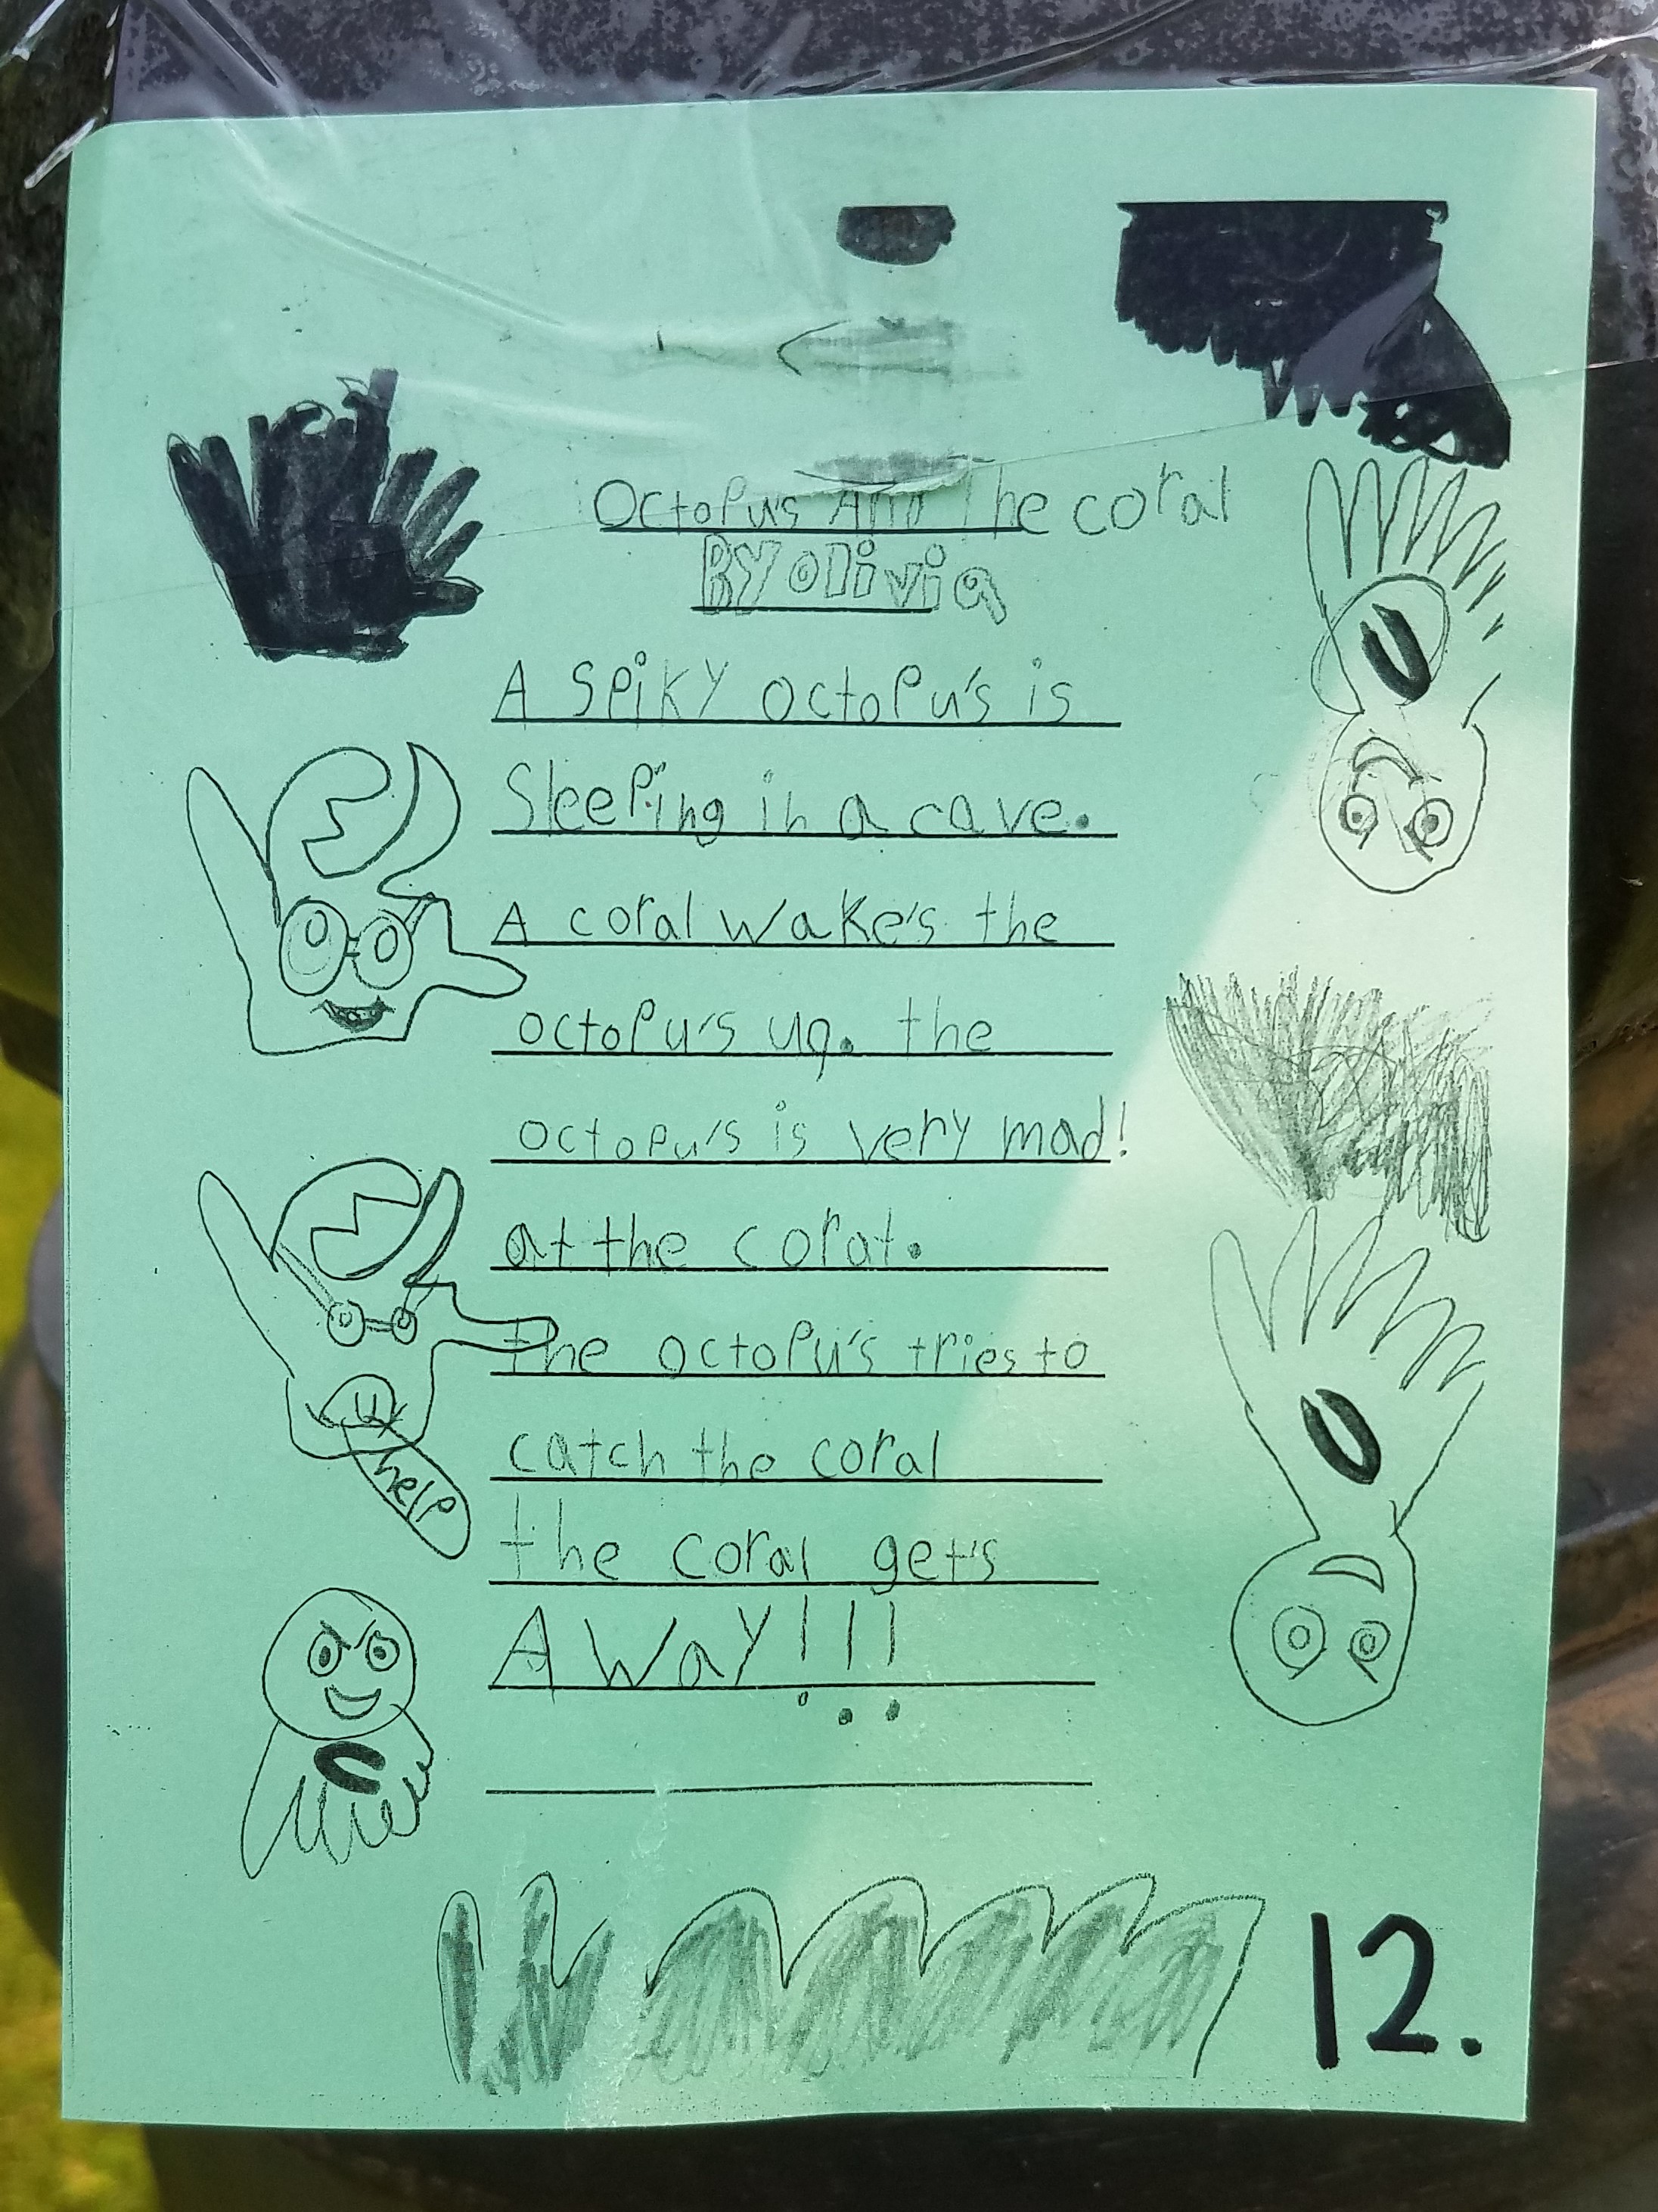 Octopus And The coral
BY olivia
A SPiKY octopu's is
Sleeping in a cave.
A coral wake's the
octopu's up. the
octopu's is very mad!
at the coral.
the octopu's tries to
catch the coral
the coral get's
A WaY!!!
help
12.